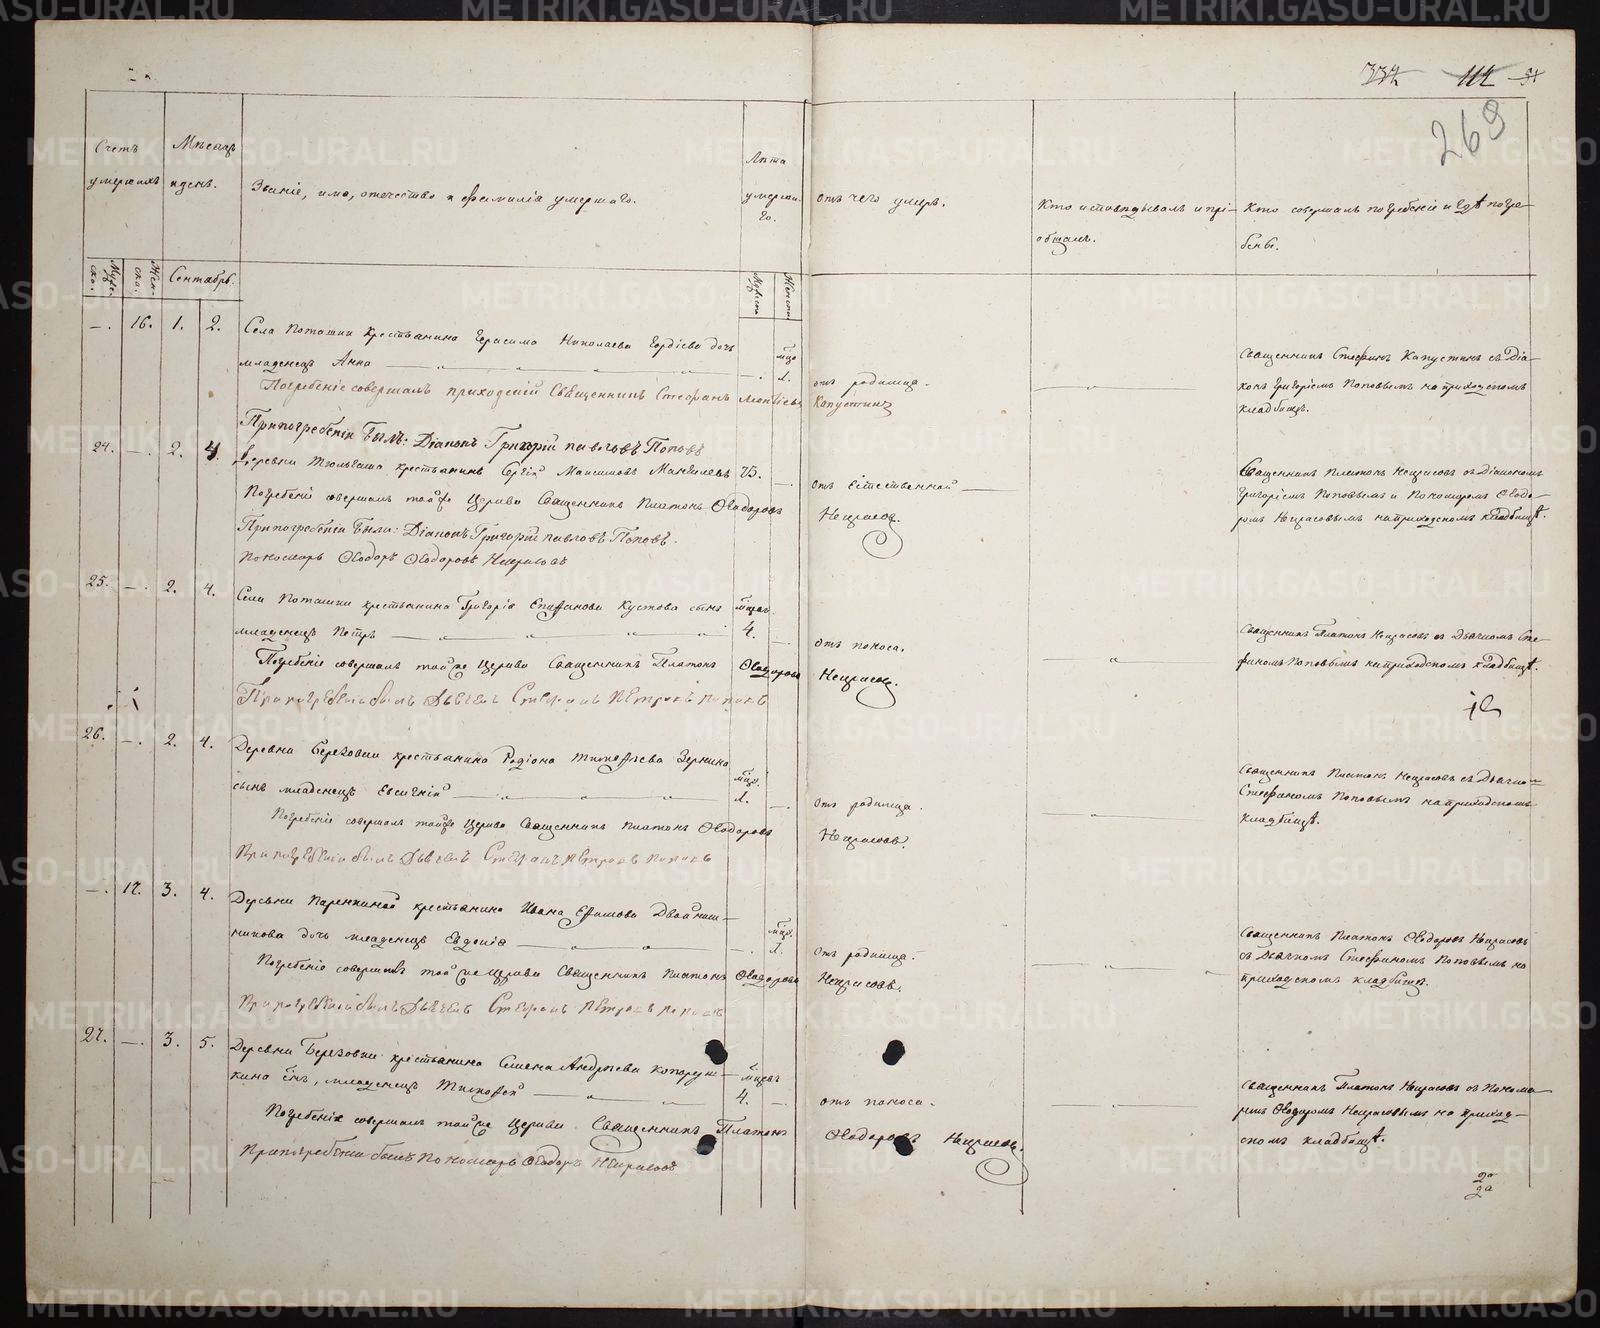 337 114 51
269
Счетъ умершихъ
Мѣсяцъ и день.
Званіе, имя, отечество и фамилія умершаго.
Лѣта умершаго.
отъ чего умеръ.
Кто исповѣдывалъ и пріобщалъ.
Кто совершалъ погребеніе и гдѣ погребены.
Мужеска. Женска. Сентябрь. Мужеска Женска
—. 16. 1. 2. Села Поташки крестьянина Герасима Николаева Гордѣева дочь
младенецъ Анна — мцо 1. отъ родимца. Священникъ Стефанъ Капустинъ съ Діакономъ Григоріемъ Поповымъ на приходскомъ кладбищѣ.
Погребеніе совершалъ приходскій Священникъ Стефанъ Леонтіевъ Капустинъ
При погребеніи былъ: Діаконъ Григорій Павловъ Поповъ
24. —. 2. 4. Деревни Тюльгаша крестьянинъ Сергій Максимовъ 75. отъ Естественной — Священникъ Платонъ Некрасовъ съ Діакономъ
Григоріемъ Поповымъ и Пономаремъ Ѳедоромъ Некрасовымъ на приходскомъ кладбищѣ.
Погребеніе совершалъ той же Церкви Священникъ Платонъ Ѳедоровъ Некрасовъ.
При погребеніи были: Діаконъ Григорій Павловъ Поповъ.
Пономарь Ѳедоръ Ѳедоровъ Некрасовъ
25. —. 2. 4. Села Поташки крестьянина Григорія Епифанова Кустова сынъ
младенецъ Петръ — мцовъ 4. отъ поноса. Священникъ Платонъ Некрасовъ съ Дьячкомъ Стефаномъ Поповымъ на приходскомъ кладбищѣ.
Погребеніе совершалъ той же Церкви Священникъ Платонъ Ѳедоровъ Некрасовъ.
При погребеніи былъ Дьячекъ Стефанъ Петровъ Поповъ
26. —. 2. 4. Деревни Березовки крестьянина Родіона Тимоѳеева Зернина
сынъ младенецъ Евсигній — мцъ. 1. отъ родимца. Священникъ Платонъ Некрасовъ съ Дьячкомъ
Стефаномъ Поповымъ на приходскомъ кладбищѣ.
Погребеніе совершалъ той же Церкви Священникъ Платонъ Ѳедоровъ Некрасовъ.
При погребеніи былъ Дьячекъ Стефанъ Петровъ Поповъ
—. 17. 3. 4. Деревни крестьянина Ивана Ефимова Двойнишникова дочь младенецъ Евдокія — мцъ. 1. отъ родимца. Священникъ Платонъ Ѳедоровъ Некрасовъ
съ Дьячкомъ Стефаномъ Поповымъ на приходскомъ кладбищѣ.
Погребеніе совершалъ той же Церкви Священникъ Платонъ Ѳедоровъ Некрасовъ.
При погребеніи былъ Дьячекъ Стефанъ Петровъ Поповъ
27. —. 3. 5. Деревни Березовки крестьянина Семена Андреева
сынъ, младенецъ Тимоѳей — мцевъ 4. отъ поноса. Священникъ Платонъ Некрасовъ съ Пономаремъ Ѳедоромъ Некрасовымъ на приходскомъ кладбищѣ.
Погребеніе совершалъ той же Церкви Священникъ Платонъ Ѳедоровъ Некрасовъ.
При погребеніи былъ Пономарь Ѳедоръ Некрасовъ
METRIKI.GASO-URAL.RU